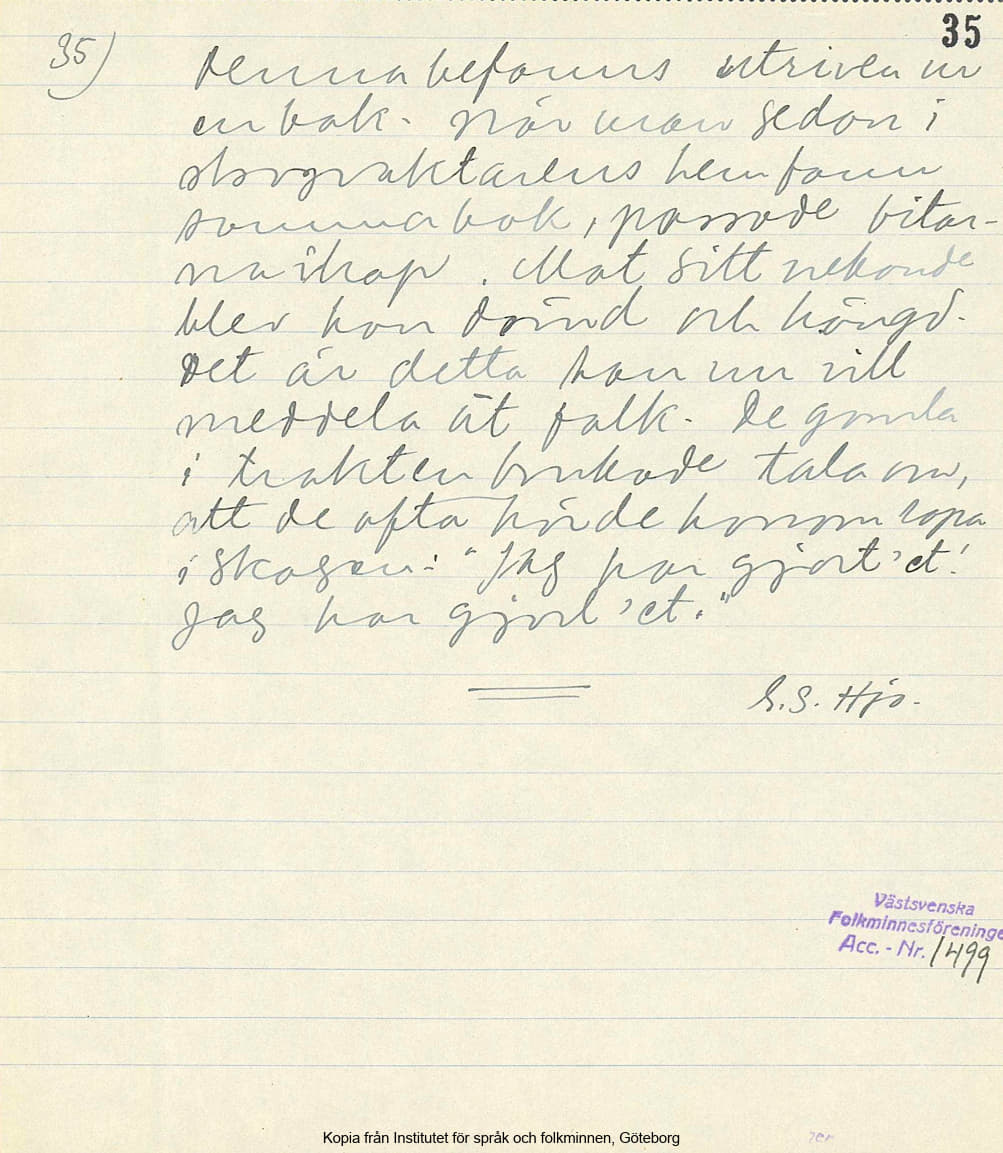 35
35)
Denna befanns utriven ur
en bok. När man sedan i
skogvaktarens hem fann
samma bok, passade bitar-
na ihop. Mot sitt nekande
blev han dömd och hängd.
Det är detta han nu vill
meddela åt folk. De gamla
i trakten brukade tala om,
att de ofta hörde honom ropa
i skogen: "Jag har gjort 'et!
Jag har gjort 'et."
S.S. Hjo.
Västsvenska
Folkminnesföreninge
Acc. - Nr. 1499
Kopia från Institutet för språk och folkminnen, Göteborg